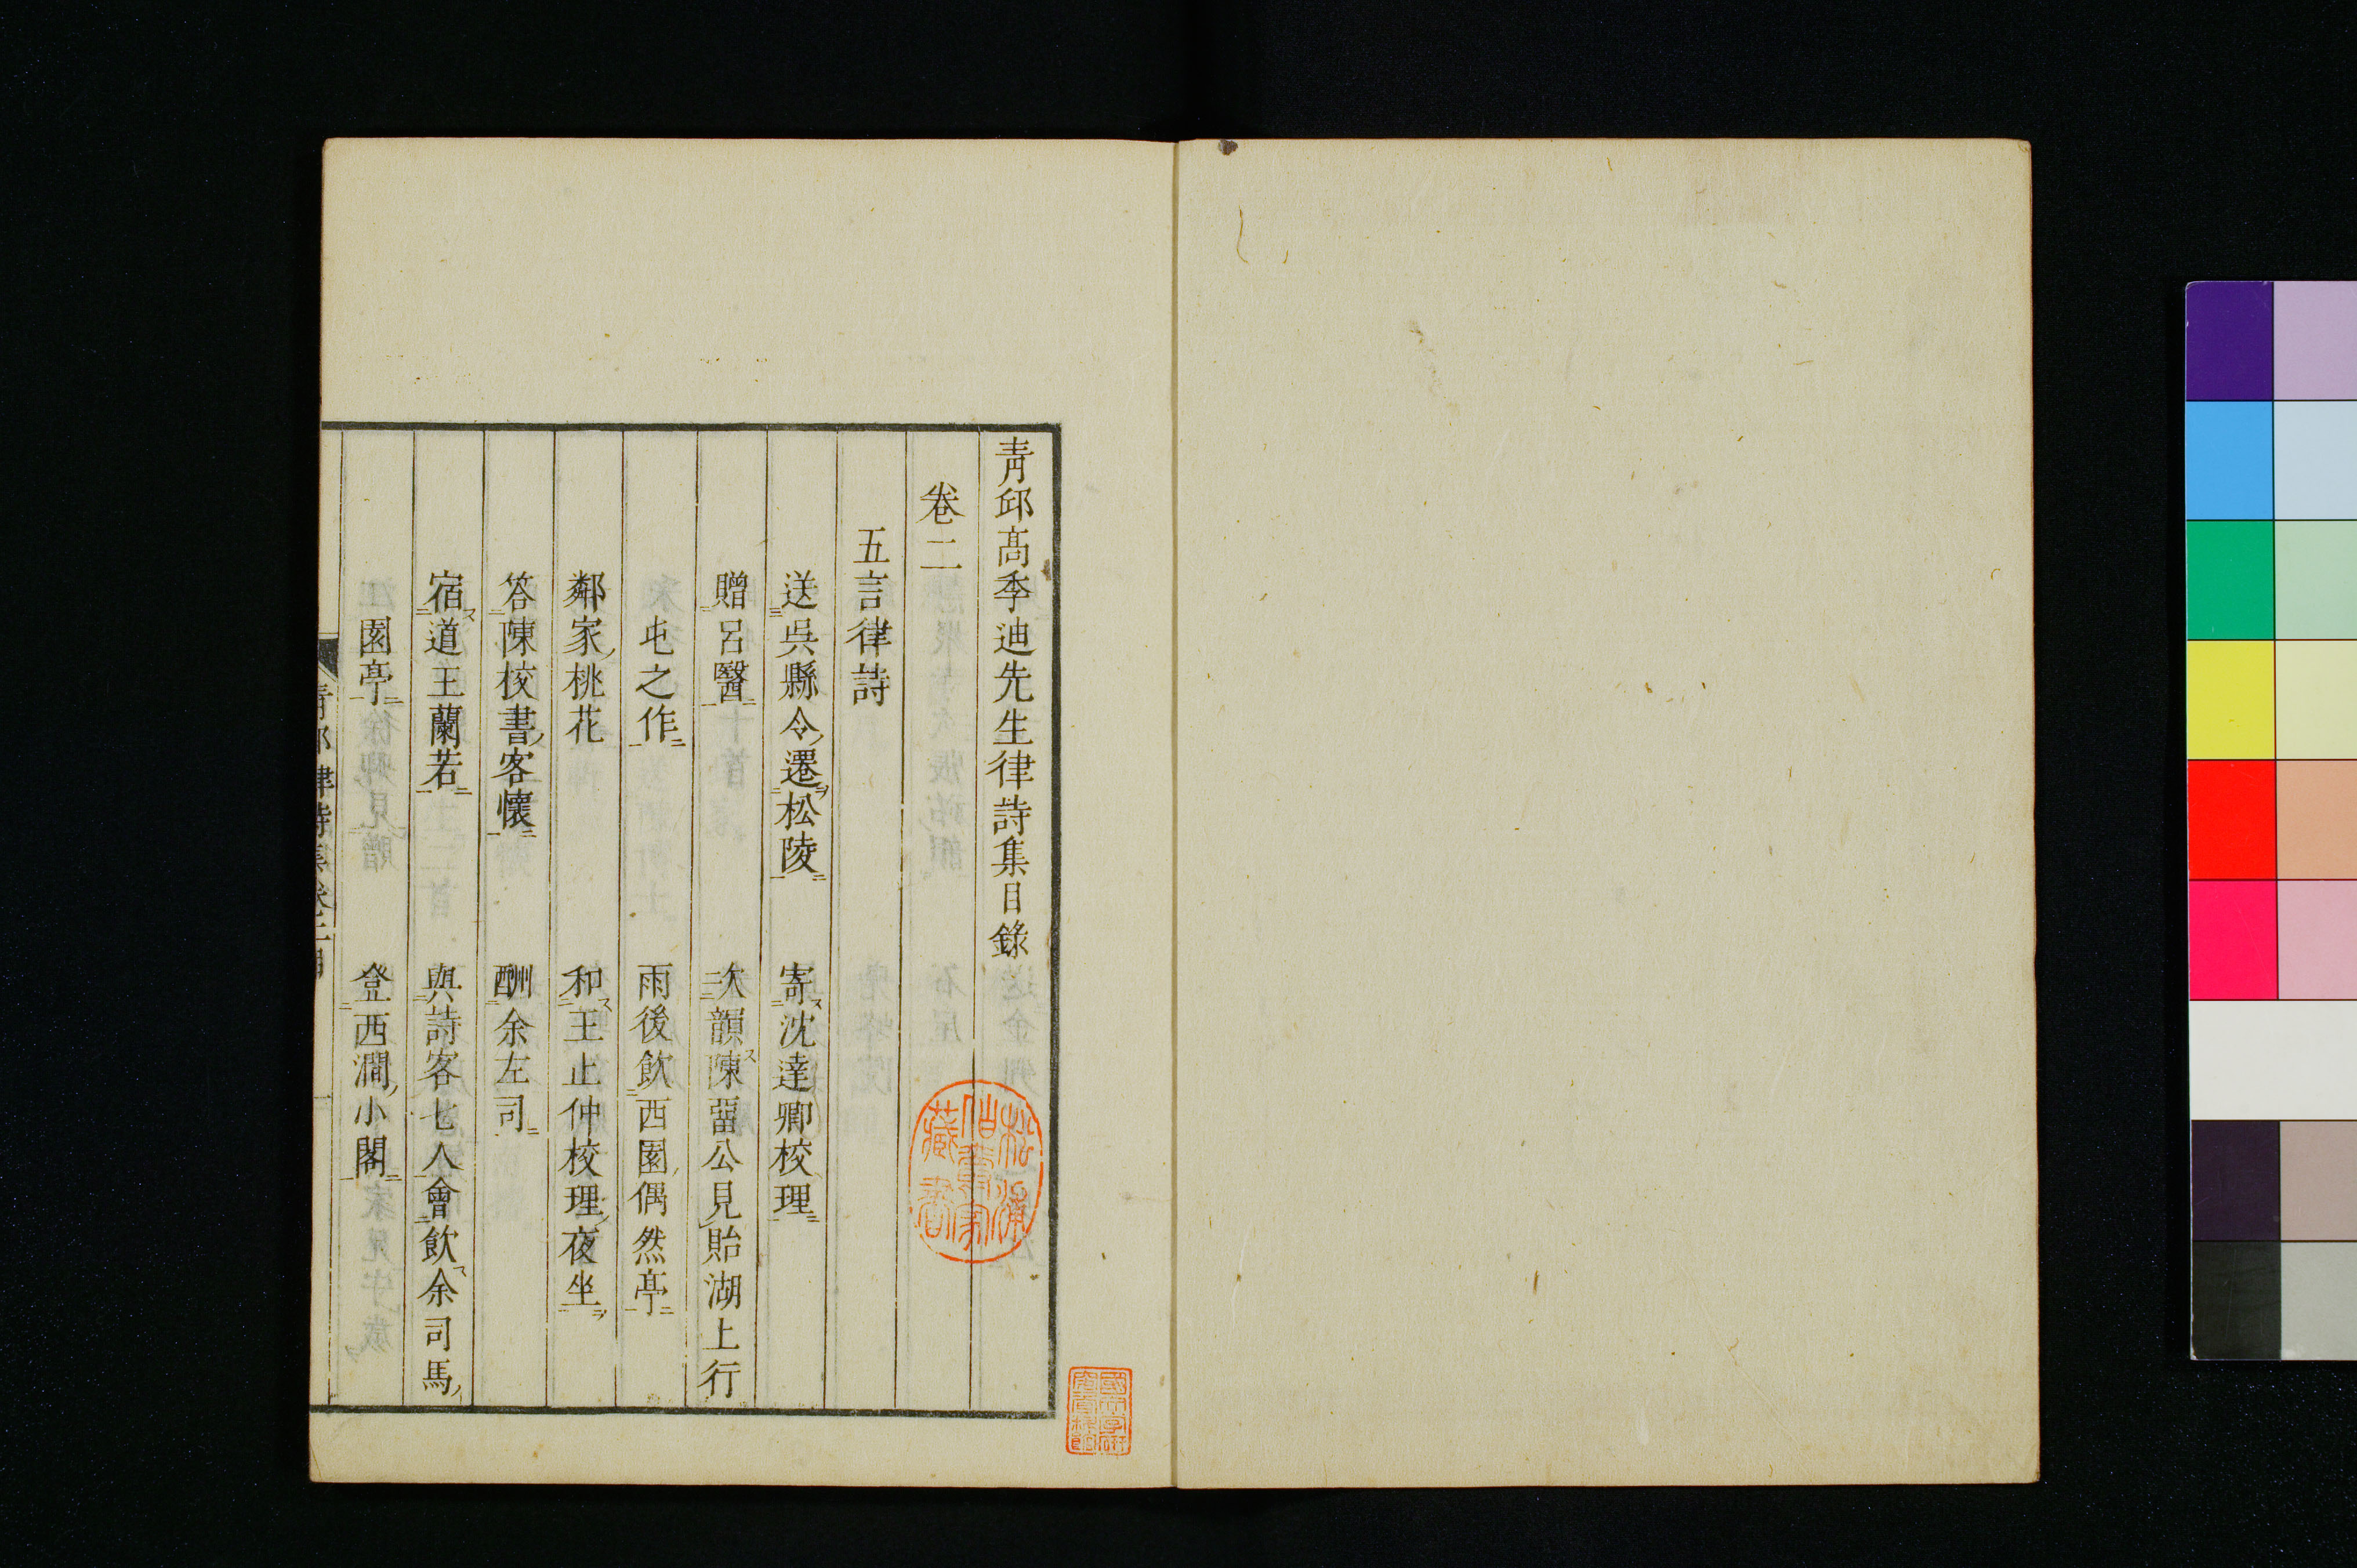 青邱高季迪先生律詩集目錄
卷二
五言律詩
送吳縣令遷松陵 寄沈達卿校理
贈呂醫 次韻陳畱公見貽湖上行
屯之作 雨後飲西園偶然亭
鄰家桃花 和王止仲校理夜坐
答陳校書客懷 酬余左司
宿道王蘭若 與詩客七人會飲余司馬
園亭 登西澗小閣
松浦伯爵家藏書